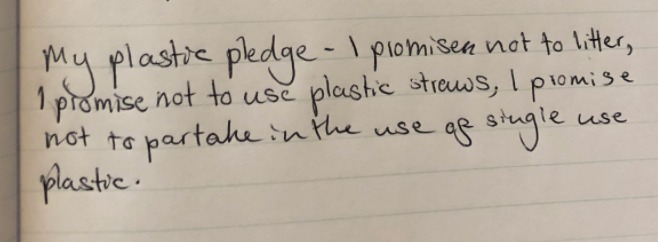 My plastic pledge - I promisen not to litter,
I promise not to use plastic straws, I promise
not to partake in the use of single use
plastic.